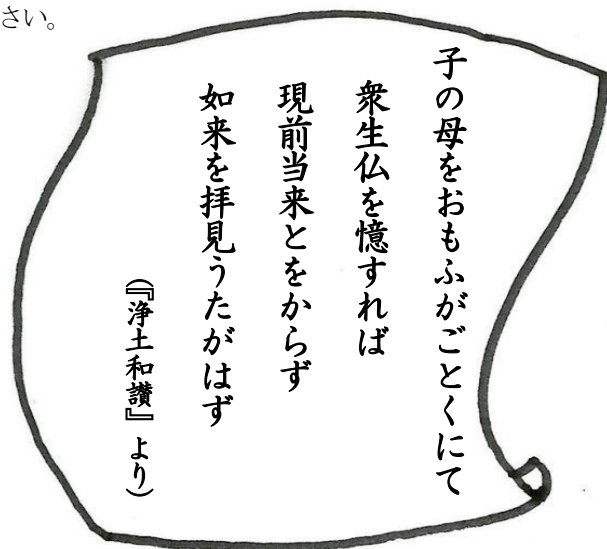 さい。
子の母をおもふがごとくにて
衆生仏を憶すれば
現前当来とをからず
如来を拝見うたがはず
（『浄土和讃』より）